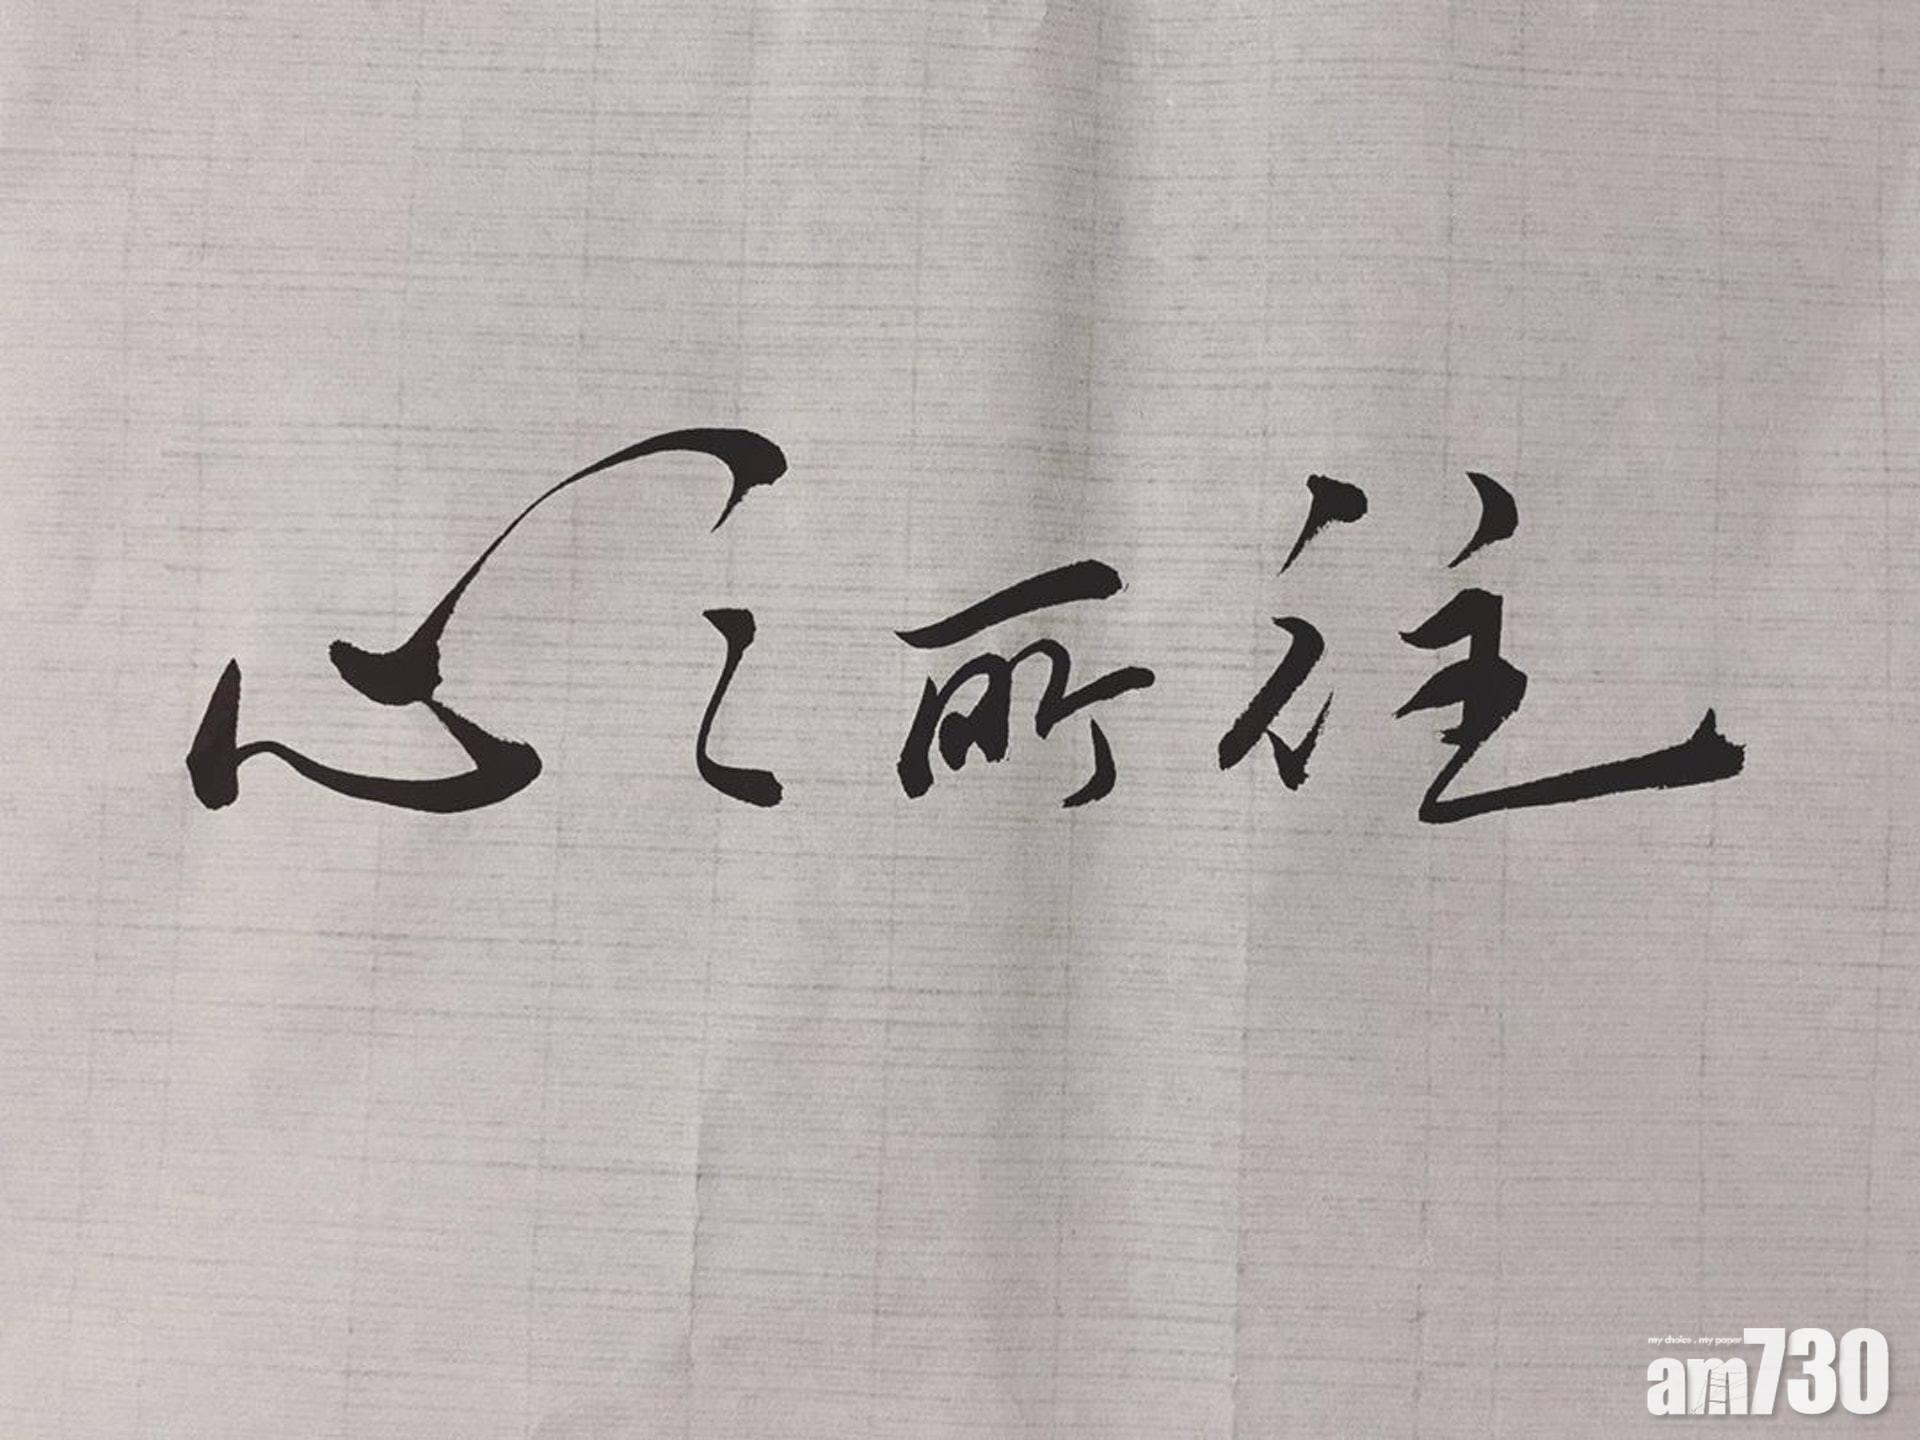 心之所往
my choice . my paper
am730